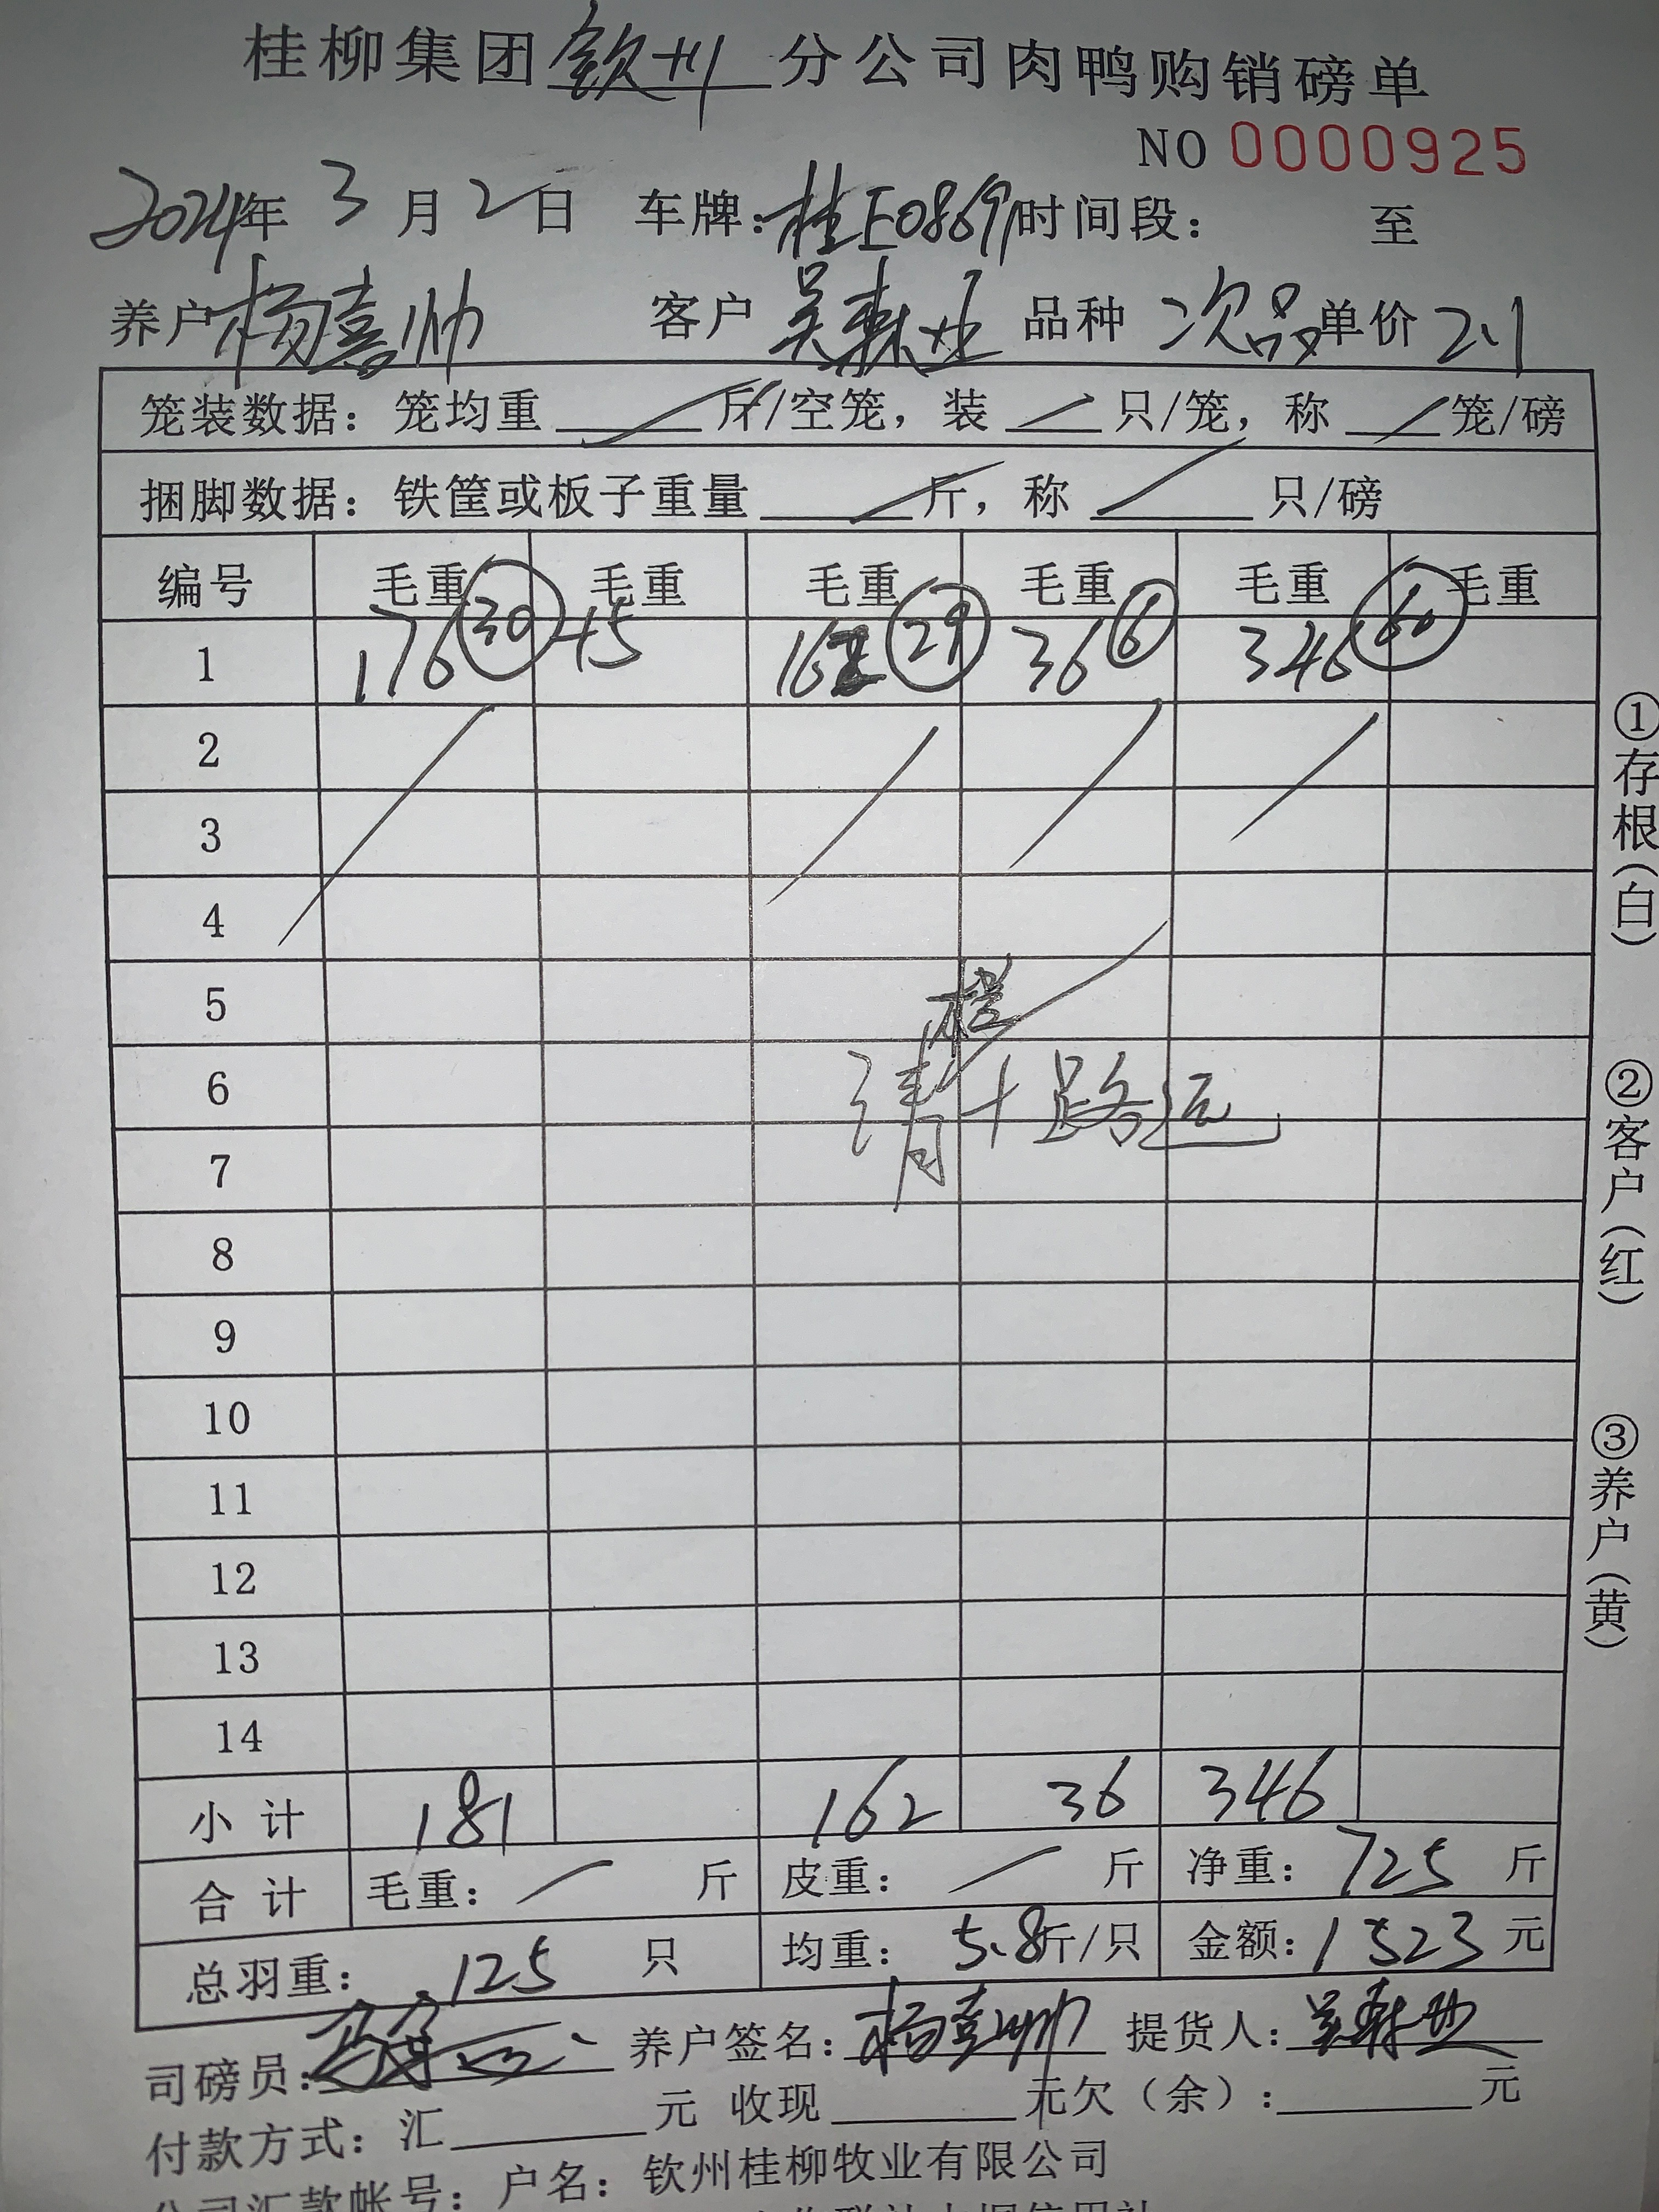 桂柳集团 钦州 分公司肉鸭购销磅单
NO 0000925
2024年 3 月 2 日 车牌：桂E0869 时间段： 至
养户 杨喜帅 客户 吴 品种 次品 单价 2.1
笼装数据：笼均重 / 斤/空笼，装 / 只/笼，称 / 笼/磅
捆脚数据：铁筐或板子重量 / 斤，称 / 只/磅
编号 毛重 毛重 毛重 毛重 毛重 毛重
1 176 30 +5 162 29 36 6 346 60
2
3
4
5
6 清 + 路远
7
8
9
10
11
12
13
14
小计 181 162 36 346
合计 毛重： / 斤 皮重： / 斤 净重：725 斤
总羽重：125 只 均重：5.8斤/只 金额：1523 元
司磅员： 养户签名：杨喜帅 提货人：吴
付款方式：汇 元 收现 元欠（余）： 元
公司汇款帐号：户名：钦州桂柳牧业有限公司
①存根（白）
②客户（红）
③养户（黄）